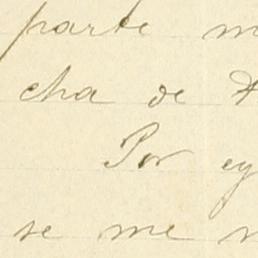 parte m
cha de
Por ey
se me